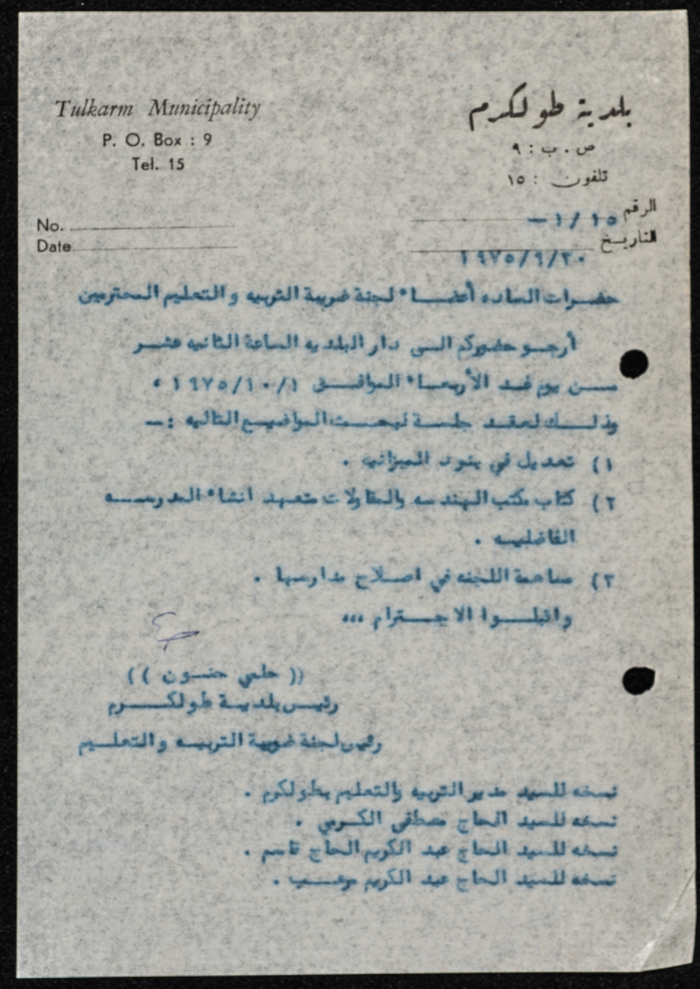 Tulkarm Municipality
P. O. Box : 9
Tel. 15
No.
Date
بلدية طولكرم
ص . ب : ٩
تلفون : ١٥
الرقم ١/١٥ —
التاريخ ١٩٧٥/٩/٣٠
حضرات الساده أعضاء لجنة ضريبة التربيه والتعليم المحترمين
أرجو حضوركم الى دار البلديه الساعة الثانيه عشر
من يوم غد الأربعاء الموافق ١٩٧٥/١٠/١ ،
وذلك لعقد جلسة لبحث المواضيع التاليه :—
١) تعديل في بنود الميزانيه .
٢) كتاب مكتب الهندسه والمقاولات متعهد انشاء المدرسه
الفاضليه .
٣) مساهمة اللجنه في اصلاح مدارسها .
واقبلوا الاحترام ،،،
(( حلمي حنون ))
رئيس بلدية طولكرم
رئيس لجنة ضريبة التربيه والتعليم
نسخه للسيد مدير التربيه والتعليم بطولكرم .
نسخه للسيد الحاج مصطفى الكرمي .
نسخه للسيد الحاج عبد الكريم الحاج قاسم .
نسخه للسيد الحاج عبد الكريم مرعب .